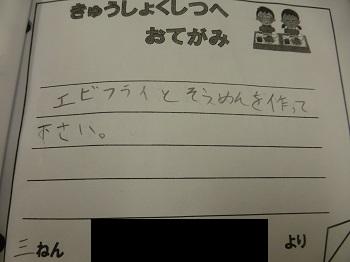 きゅうしょくしつへ
おてがみ
エビフライとそうめんを作って
下さい。
三ねん より